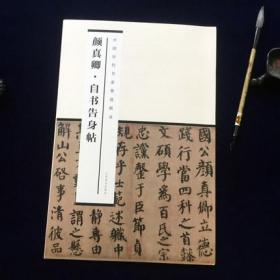 颜真卿·自书告身帖
國公顏真卿立德
踐行當四科之首
文碩學為百氏之宗
忠讜罄于臣節貞
規存乎士範述職中
靜專由
謂之懸
解山公啓事清彼品